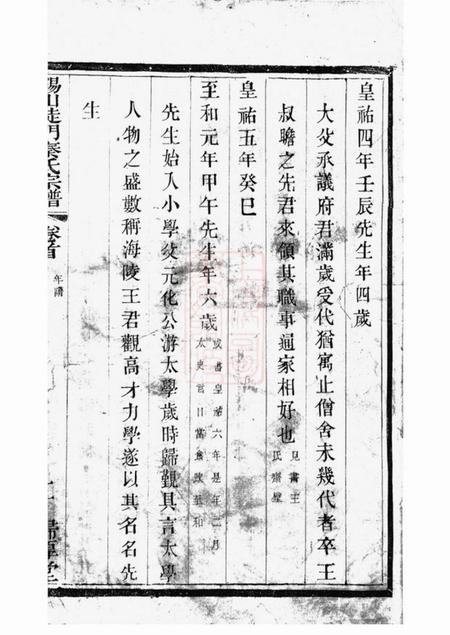 皇祐四年壬辰先生年四歲
大父承議府君滿歲受代猶寓止僧舍未幾代者卒王
叔瞻之先君來領其職事逼家相好也
見書王
氏齋壁
皇祐五年癸巳
至和元年甲午先生年六歲
或書皇祐六年是年三月
太史言日當食改至和
先生始入小學父元化公游太學歲時歸覲具言太學
人物之盛數稱海陵王君觀高才力學遂以其名名先
生
錫山陡門秦氏宗譜
卷首
年譜
歸厚堂